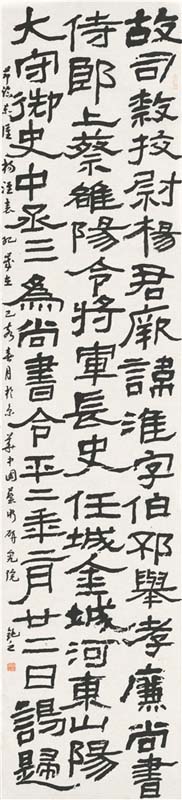 故司隸挍尉楊君厥諱淮字伯邳舉孝廉尚書
侍郎上蔡雒陽令將軍長史任城金城河東山陽
大守御史中丞三為尚書令平二年二月廿二日謁歸
節臨楊淮表紀 己亥春月於京華中國藝術研究院